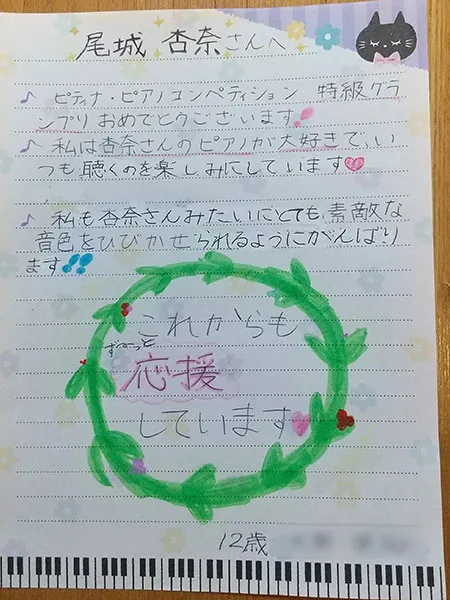 尾城 杏奈さんへ
♪ ピティナ・ピアノコンペティション 特級グラ
ンプリおめでとうございます!
♪ 私は杏奈さんのピアノが大好きで、い
つも聴くのを楽しみにしています♥
♪ 私も杏奈さんみたいにとても素敵な
音色をひびかせられるようにがんばり
ます
これからも
ずーっと
応援
しています
12歳